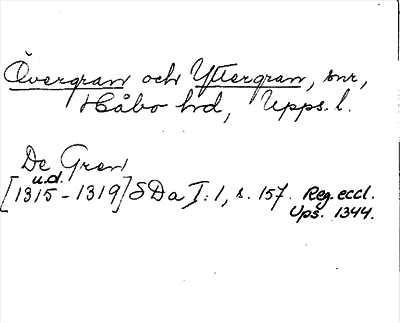 Övergran och Yttergran, snr,
Håbo hd, Upps. l.
De Gran
u.d.
[1315-1319] SDa I:1, s. 157. Reg. eccl.
Ups. 1344.